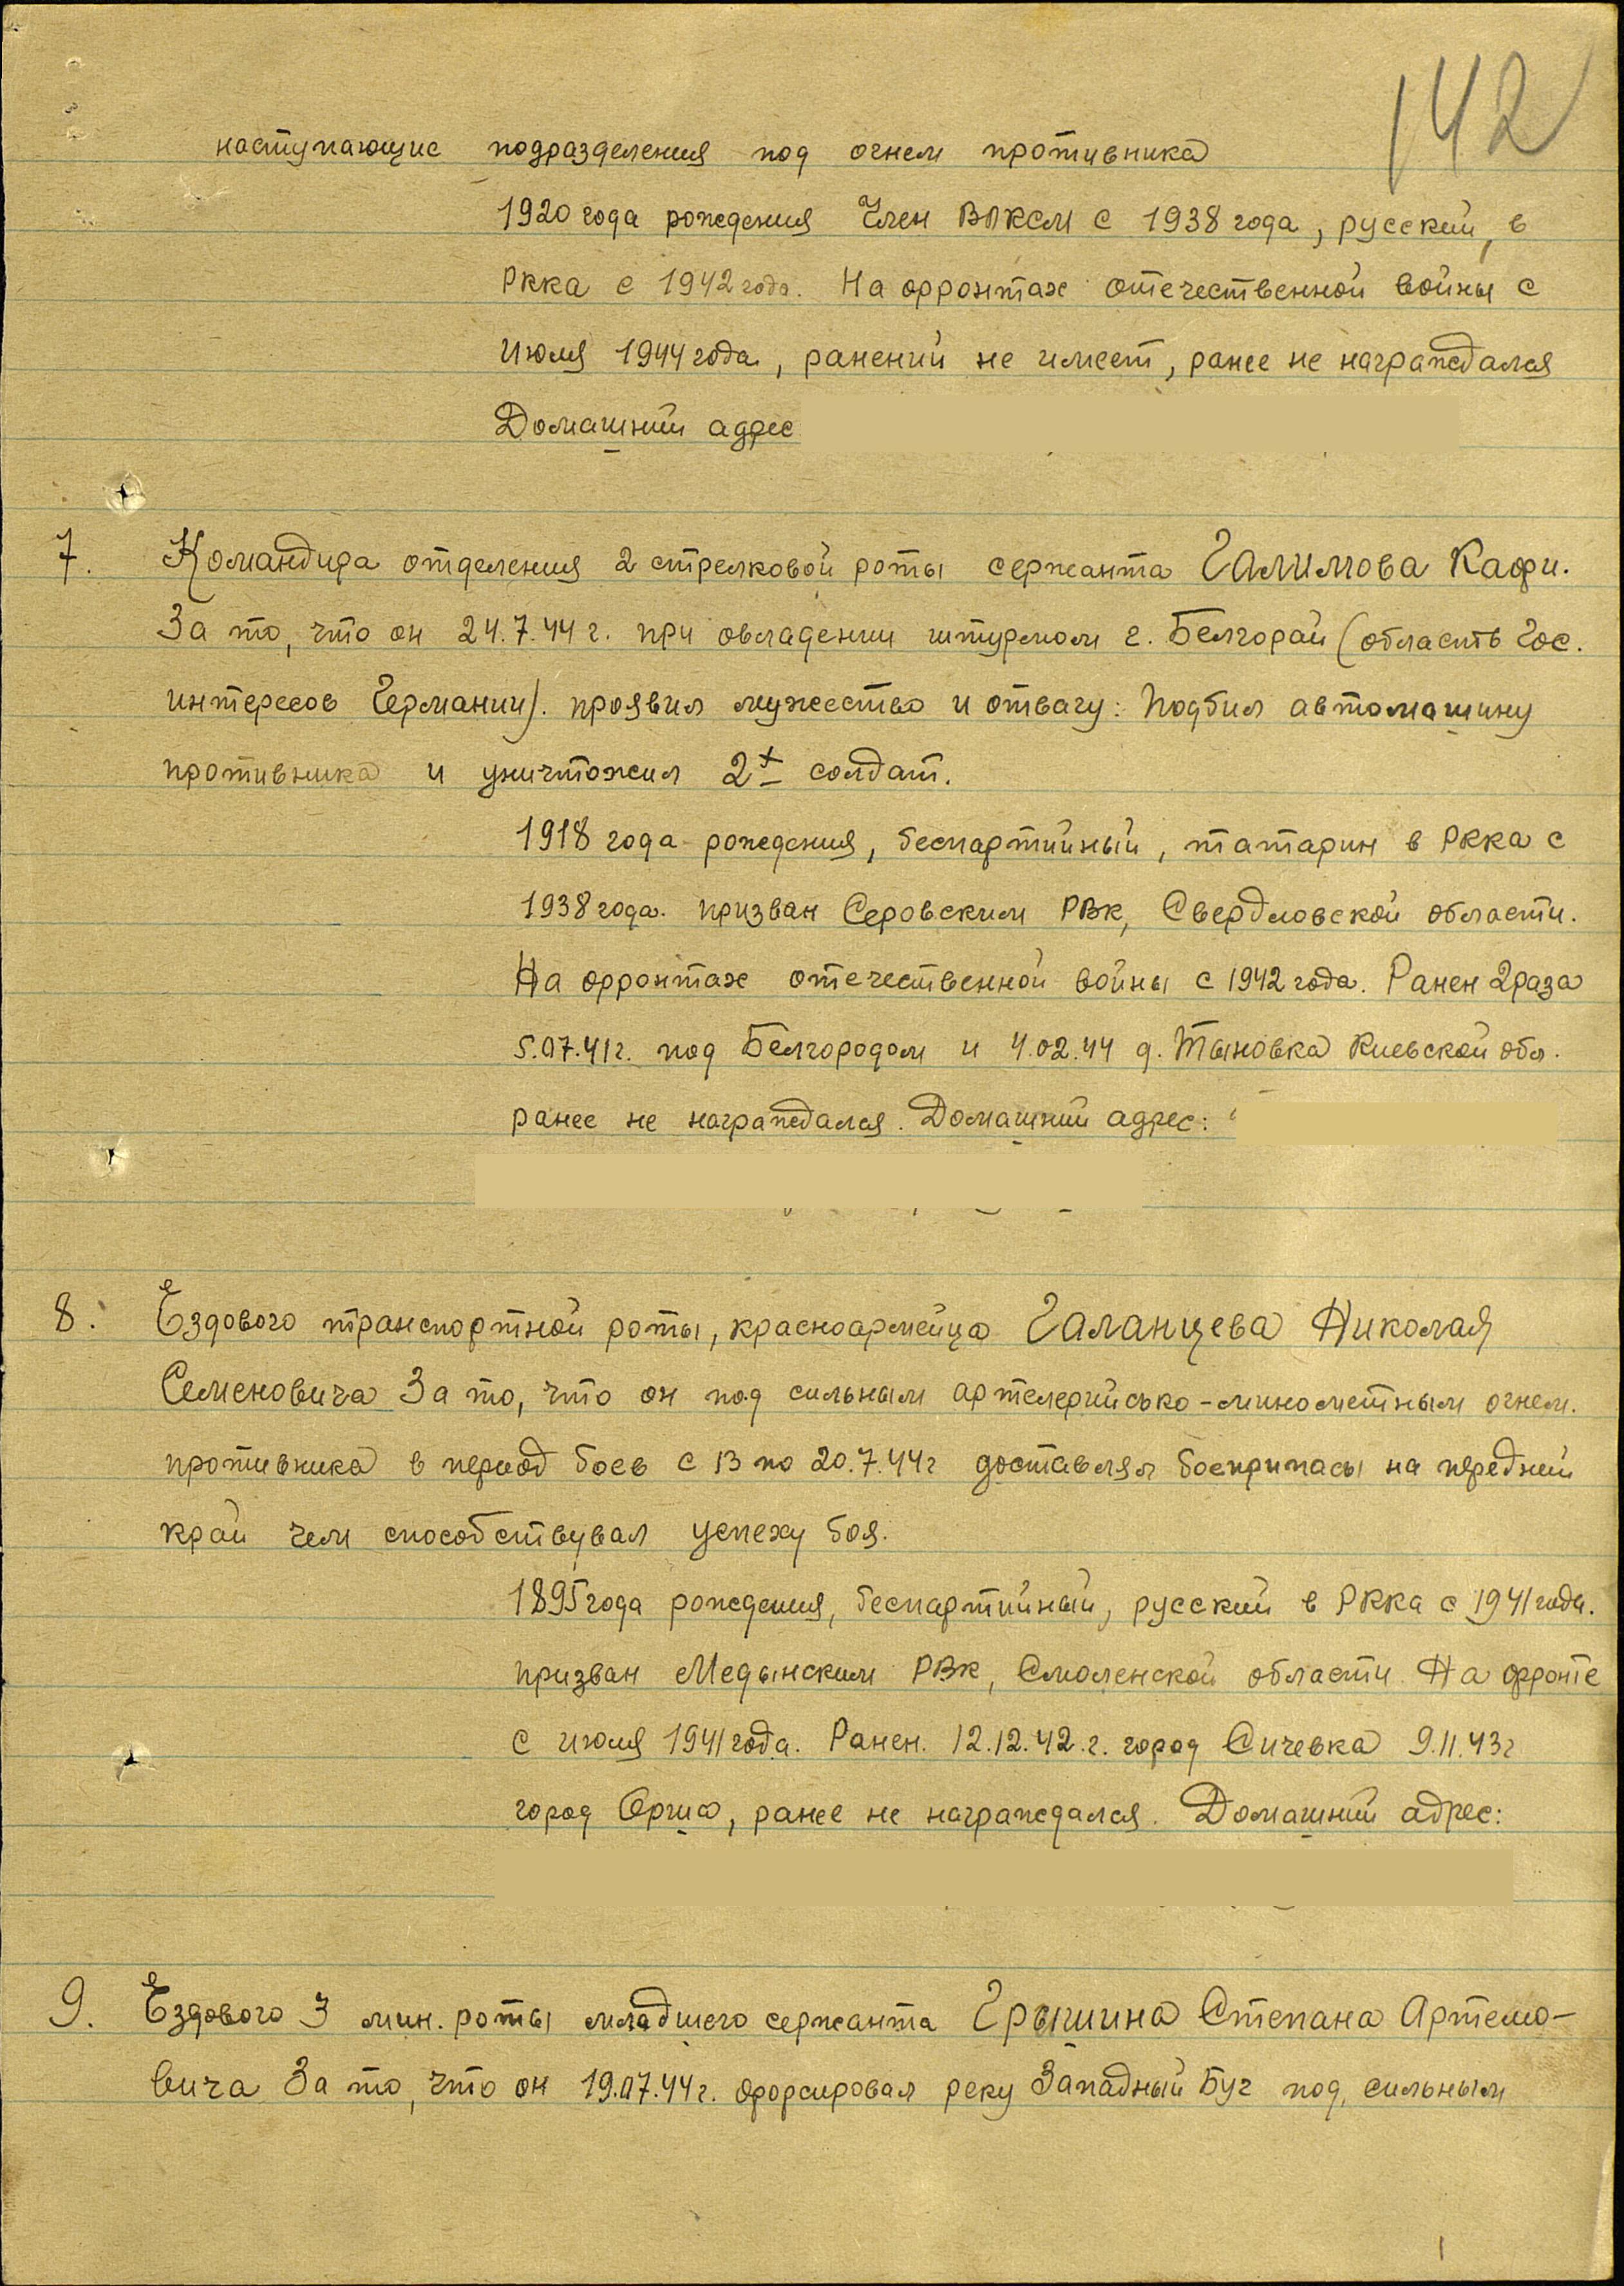 142
наступающие подразделения под огнем противника
1920 года рождения Член ВЛКСМ с 1938 года, русский, в
РККА с 1942 года. На фронтах отечественной войны с
июля 1944 года, ранений не имеет, ранее не награждался
Домашний адрес
7. Командира отделения 2 стрелковой роты сержанта Галимова Кафи.
За то, что он 24.7.44 г. при овладении штурмом г. Белгорай (область Гос.
интересов Германии). проявил мужество и отвагу: Подбил автомашину
противника и уничтожил 2х солдат.
1918 года рождения, беспартийный, татарин в РККА с
1938 года. призван Серовским РВК, Свердловской области.
На фронтах отечественной войны с 1942 года. Ранен 2 раза
5.07.41г. под Белгородом и 4.02.44 д. Тыновка Киевской обл.
ранее не награждался. Домашний адрес:
8. Ездового транспортной роты, красноармейца Галанцева Николая
Семеновича За то, что он под сильным артелерийсько-минометным огнем.
противника в период боев с 13 по 20.7.44г доставлял боеприпасы на передний
край чем способствувал успеху боя.
1895 года рождения, беспартийный, русский в РККА с 1941 года.
призван Медынским РВК, Смоленской области На фронте
с июля 1941 года. Ранен. 12.12.42.г. город Сичевка 9.11.43г
город Орша, ранее не награждался. Домашний адрес:
9. Ездового 3 мин. роты младшего сержанта Грышина Степана Артемо-
вича За то, что он 19.07.44г. форсировал реку Западный Буг под, сильным